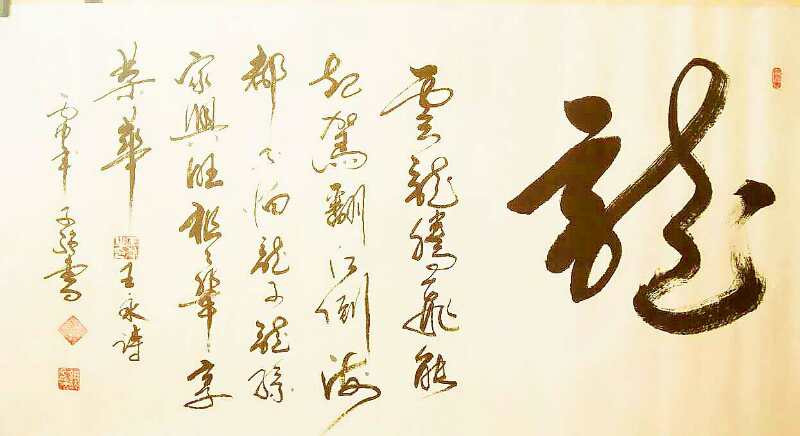 龍
雲龍騰飛能
起駕翻江倒海
都不怕龍子龍孫
家興旺祖々輩々享
榮華
王永詩
丙申年子強書